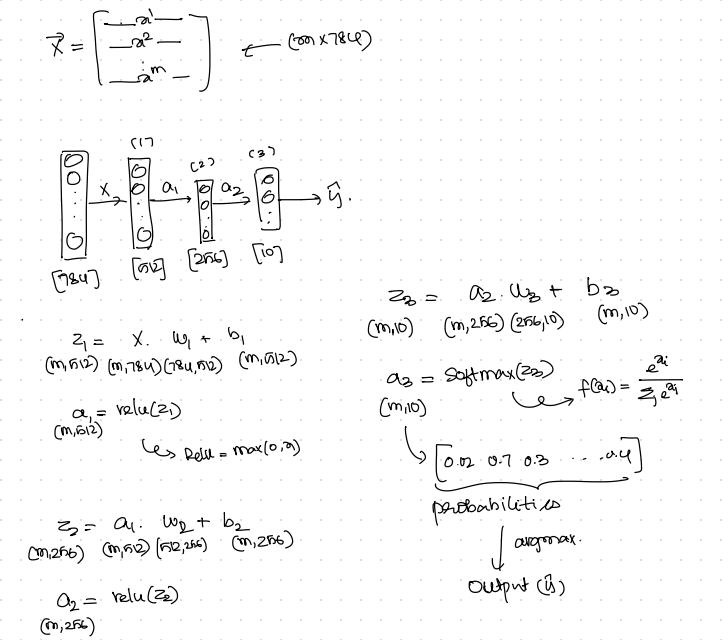 X⃗ = [ — x¹ —
— x² —
⋮
— xᵐ — ] ← (m×784)
(1) (2) (3)
x a₁ a₂ ŷ.
[784] [512] [256] [10]
z₁ = x. w₁ + b₁
(m,512) (m,784) (784,512) (m,512)
a₁ = relu(z₁)
(m,512)
Relu = max(0,x)
z₂ = a₁. w₂ + b₂
(m,256) (m,512) (512,256) (m,256)
a₂ = relu(z₂)
(m,256)
z₃ = a₂. w₃ + b₃
(m,10) (m,256) (256,10) (m,10)
a₃ = softmax(z₃)
(m,10)
f(xᵢ) = e^xᵢ / Σⱼ e^xᵢ
[0.02 0.7 0.3 ... 0.4]
probabilities
argmax.
Output (ŷ)